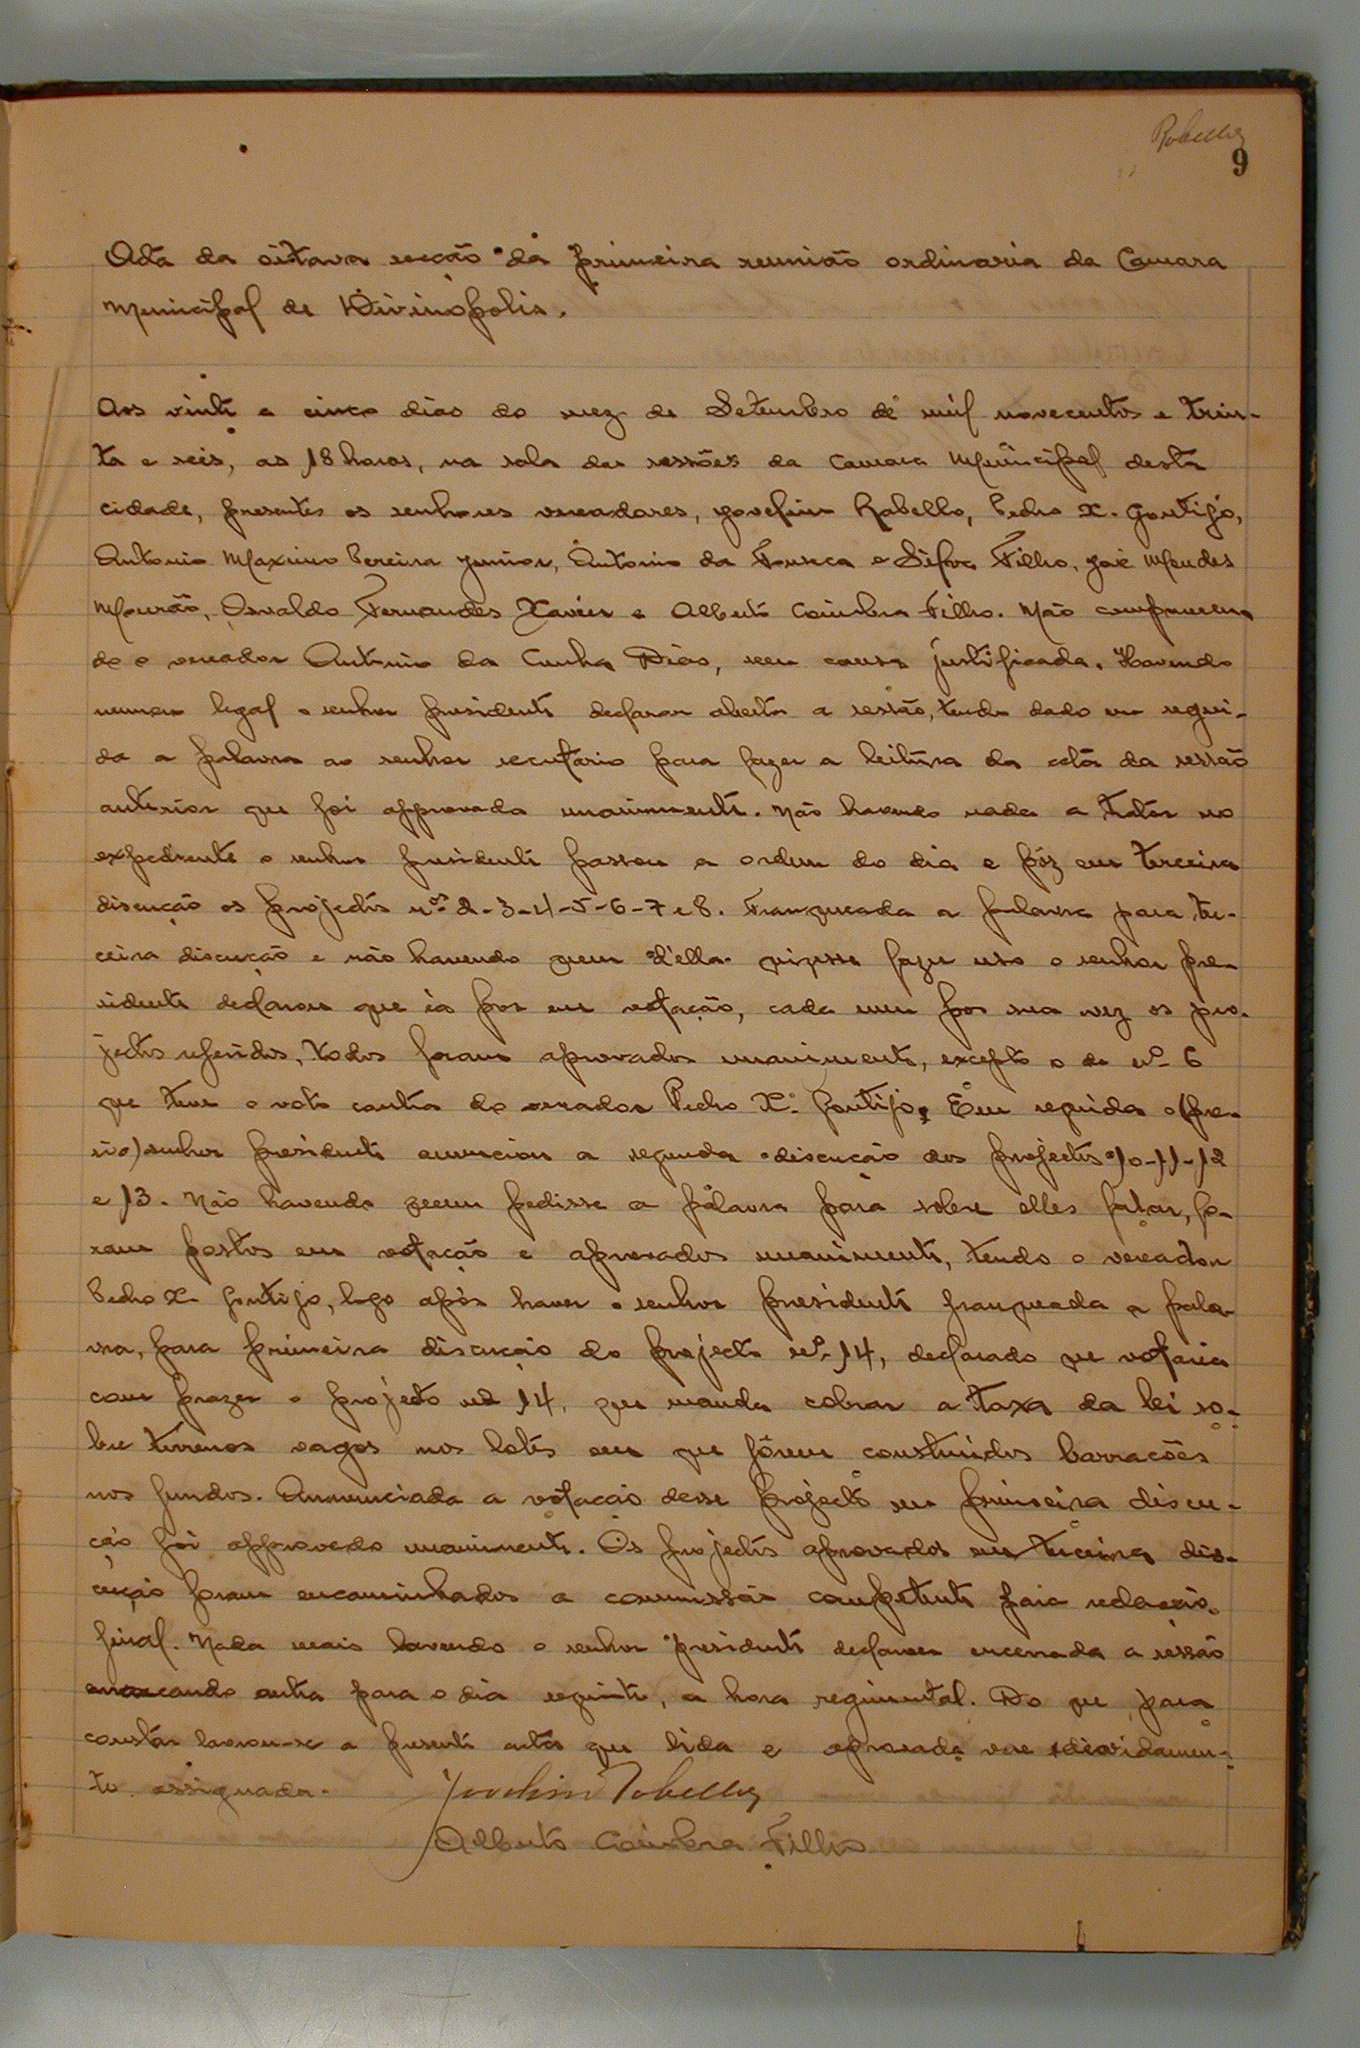 Rabello
9
Acta da oitava secção da primeira reunião ordinaria da Camara
Municipal de Divinopolis.
Aos vinte e cinco dias do mez de Setembro de mil novecentos e trin-
ta e seis, as 18 horas, na sala das sessões da Camara Municipal desta
cidade, presentes os senhores vereadores, Jovelino Rabello, Pedro X. Gontijo,
Antonio Maximo Pereira Junior, Antonio da Fonseca e Silva Filho, José Mendes
Mourão, Osvaldo Fernandes Xavier e Alberto Coimbra Filho. Não comparecen
do o vereador Antonio da Cunha Dias, sem causa justificada. Havendo
numero legal o senhor presidente declarou aberta a sessão, tendo dado em segui-
da a palavra ao senhor secretario para fazer a leitura da acta da sessão
anterior que foi approvada unanimente. Não havendo nada a tratar no
expediente o senhor presidente passou a ordem do dia e pôz em terceira
discução os projectos nºs 2-3-4-5-6-7 e 8. Franqueada a palavra para ter-
ceira discucção e não havendo quem d'ella quizesse fazer uso o senhor pre-
sidente declarou que ia por em votação, cada um por sua vez os pro-
jectos referidos, todos foram aprovados unanimente, excepto o de nº 6
que teve o voto contra do vereador Pedro X. Gontijo. Em seguida o (pre-
sio) senhor presidente annunciou a segunda discucão dos projectos 10-11-12
e 13. Não havendo quem pedisse a palavra para sobre elles falar, fo-
ram postos em votação e aprovados unanimente, tendo o vereador
Pedro X. Gontijo, logo após haver o senhor presidente franqueada a pala-
vra, para primeira discução do projecto nº 14, declarado que votaria
com prazer o projecto nº 14, que manda cobrar a taxa da lei so-
bre terrenos vagos nos lotes em que fôrem construidos barracões
nos fundos. Annunciada a votação desse projecto em primeira discu-
ção foi approvado unanimente. Os projectos aprovados em terceira dis-
cução foram encaminhados a commissão competente para redacção
final. Nada mais havendo o senhor presidente declarou encerrada a sessão
marcando outra para o dia seguinte, a hora regimental. Do que, para
constar lavrou-se a presente acta que lida e aprovada vae devidamen-
te assignada.
Jovelino Rabello
Alberto Coimbra Filho